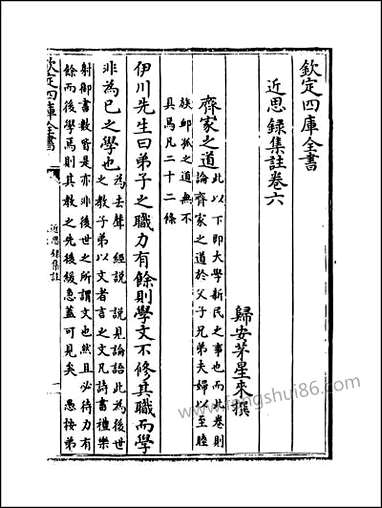 欽定四庫全書
近思録集註卷六
歸安茅星來撰
齊家之道
此以下即大學新民之事也而此卷則
論齊家之道於父子兄弟夫婦以至睦
族卹孤之道無不
具焉凡二十二條
伊川先生曰弟子之職力有餘則學文不修其職而學
非為已之學也
為去聲 經說 說見論語此為後世
之教子弟以文者言之文凡詩書禮樂
射御書數皆是亦非後世之所謂文也然且必待力有
餘而後學焉則其教之先後緩急蓋可見矣 愚按弟
欽定四庫全書
近思録集註
一
www.fengshui86.com